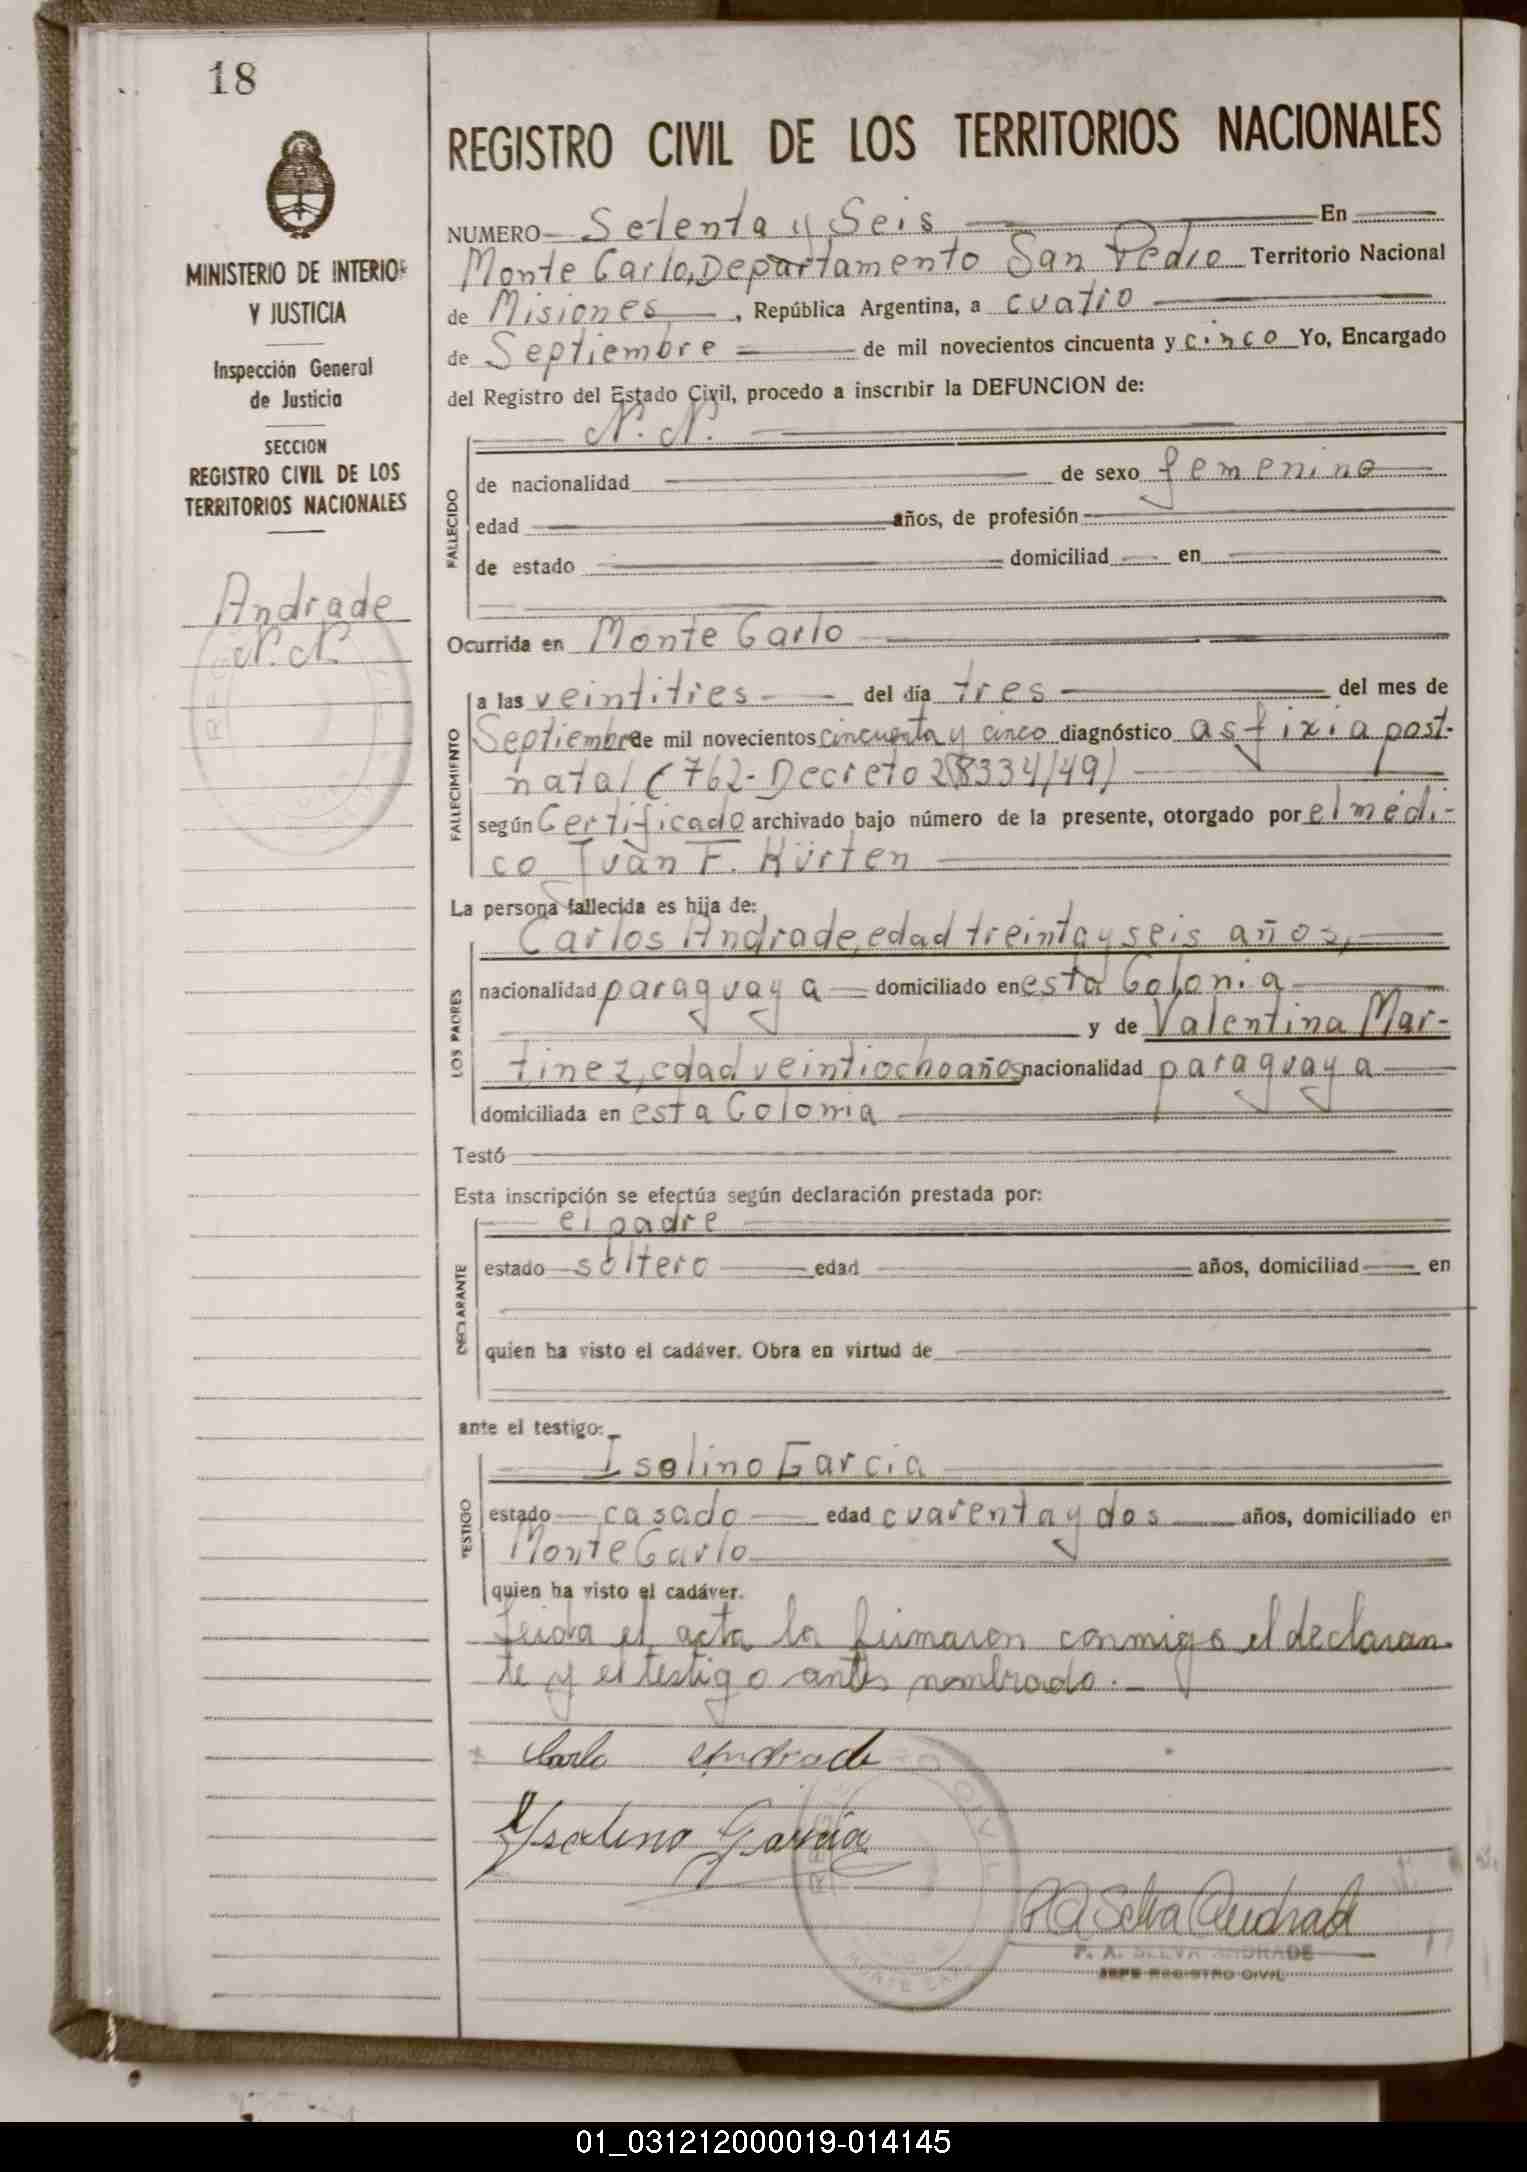 18
REGISTRO CIVIL DE LOS TERRITORIOS NACIONALES
MINISTERIO DE INTERIOR
Y JUSTICIA
Inspección General
de Justicia
SECCION
REGISTRO CIVIL DE LOS
TERRITORIOS NACIONALES
Andrade
N. N.
NUMERO Setenta y Seis En
Monte Carlo, Departamento San Pedro Territorio Nacional
de Misiones, República Argentina, a cuatro
de Septiembre de mil novecientos cincuenta y cinco Yo, Encargado
del Registro del Estado Civil, procedo a inscribir la DEFUNCION de:
N. N.
FALLECIDO
de nacionalidad de sexo femenino
edad años, de profesión
de estado domiciliad en
Ocurrida en Monte Carlo
FALLECIMIENTO
a las veintitres del día tres del mes de
Septiembre de mil novecientos cincuenta y cinco diagnóstico asfixia post-
natal (762-Decreto 28334/49)
según Certificado archivado bajo número de la presente, otorgado por el médi-
co Ivan F. Hürten
La persona fallecida es hija de:
LOS PADRES
Carlos Andrade, edad treinta y seis años,
nacionalidad paraguaya domiciliado en esta Colonia
y de Valentina Mar-
tinez, edad veintiocho años nacionalidad paraguaya
domiciliada en esta Colonia
Testó
Esta inscripción se efectúa según declaración prestada por:
DECLARANTE
el padre
estado soltero edad años, domiciliad en
quien ha visto el cadáver. Obra en virtud de
ante el testigo:
TESTIGO
Isolino Garcia
estado casado edad cuarenta y dos años, domiciliado en
Monte Carlo
quien ha visto el cadáver.
Leida el acta la firmaron conmigo el declaran-
te y el testigo antes nombrado.-
Carlo Andrade
Ysolino Garcia
P A Selva Andrade
P. A. SELVA ANDRADE
JEFE REGISTRO CIVIL
01_031212000019-014145